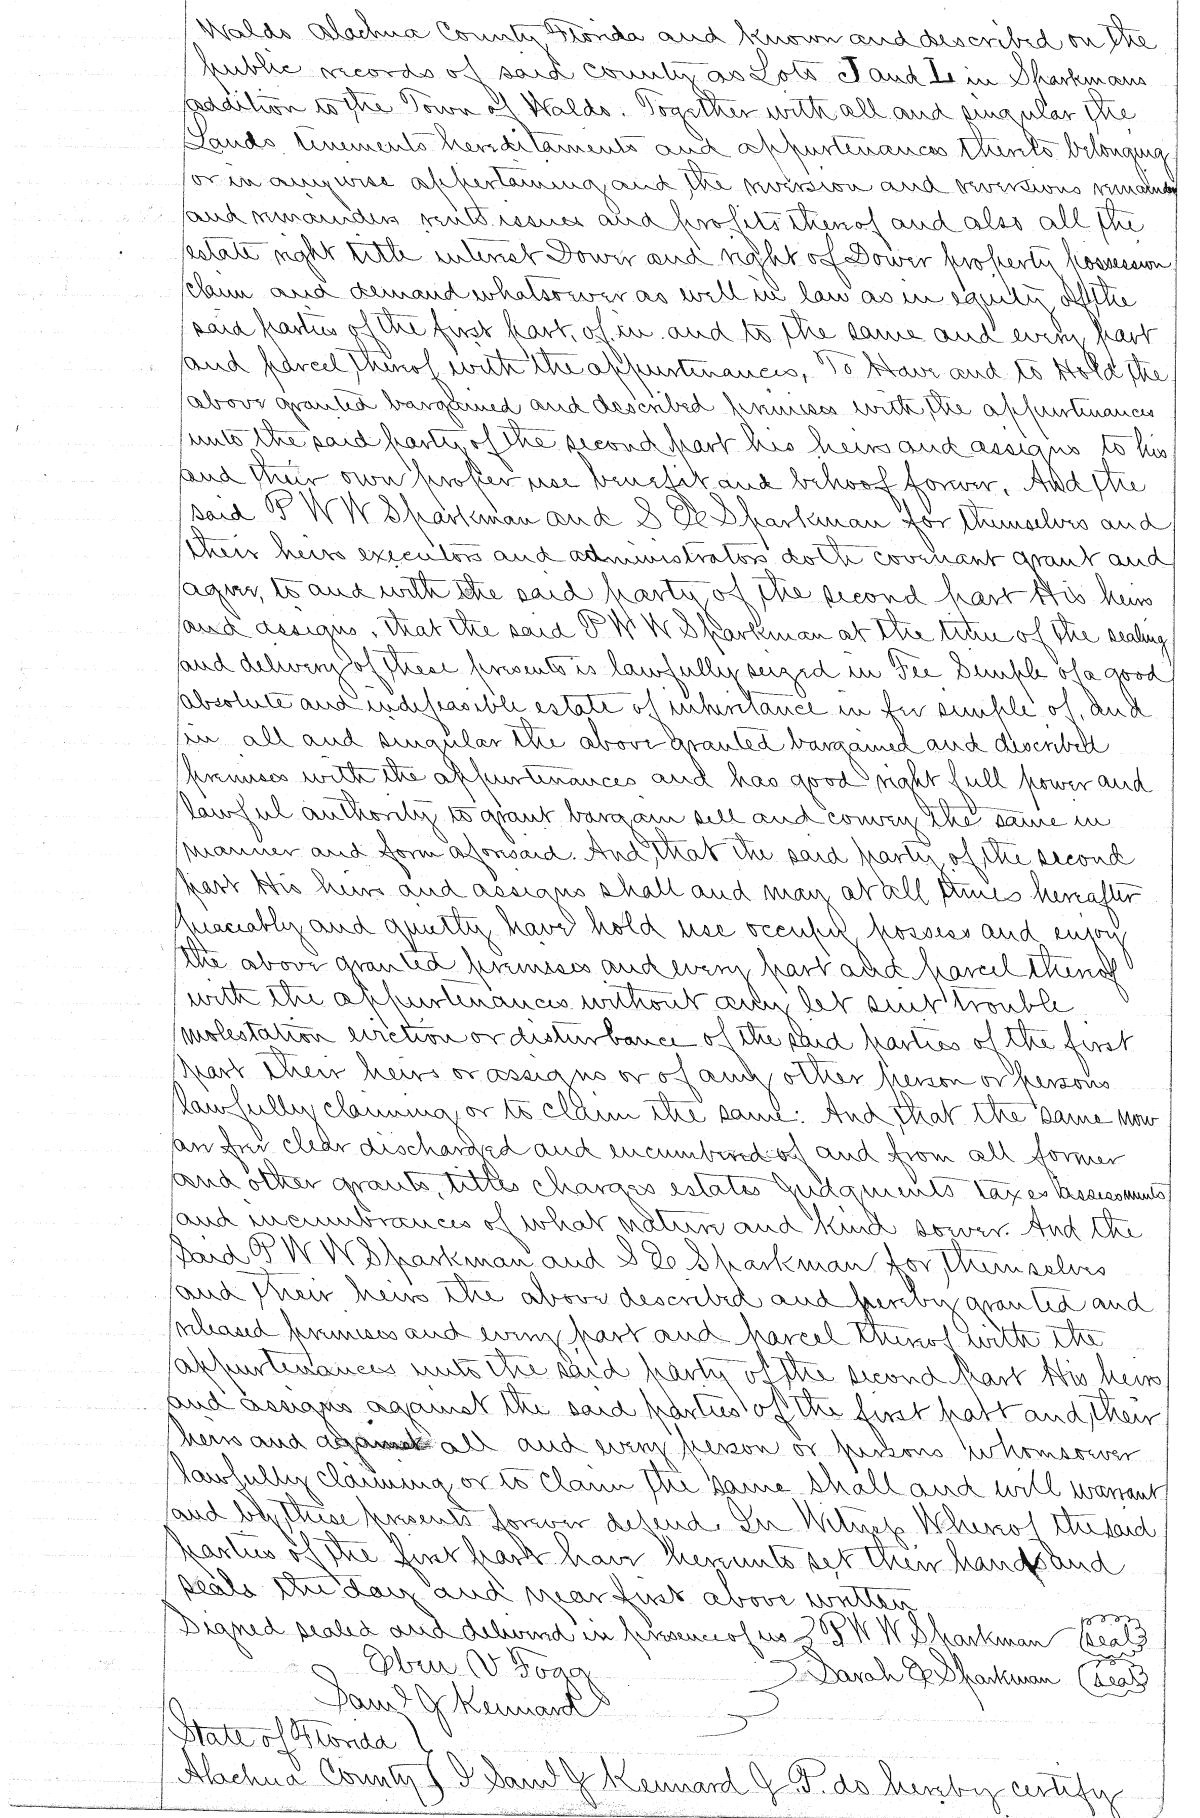 Waldo Alachua County Florida and known and described on the
public records of said county as Lots J and L in Sparkmans
addition to the Town of Waldo. Together with all and singular the
Lands tenements hereditaments and appurtenances thereto belonging
or in anywise appertaining and the reversion and reversions remainder
and remainders rents issues and profits thereof and also all the
estate right title interest Dower and right of Dower property possession
claim and demand whatsoever as well in law as in equity of the
said parties of the first part, of, in and to the same and every part
and parcel thereof with the appurtenances, To Have and to Hold the
above granted bargained and described premises with the appurtenances
unto the said party of the second part his heirs and assigns to his
and their own proper use benefit and behoof forever. And the
said P W W Sparkman and S E Sparkman for themselves and
their heirs executors and administrators doth covenant grant and
agree, to and with the said party of the second part His heirs
and assigns, that the said P W W Sparkman at the time of the sealing
and delivery of these presents is lawfully seized in Fee Simple of a good
absolute and indefeasible estate of inheritance in fee simple of, and
in all and singular the above granted bargained and described
premises with the appurtenances and has good right full power and
lawful authority to grant bargain sell and convey the same in
manner and form aforesaid. And that the said party of the second
part His heirs and assigns shall and may at all times hereafter
peaceably and quietly have hold use occupy possess and enjoy
the above granted premises and every part and parcel thereof
with the appurtenances without any let suit trouble
molestation eviction or disturbance of the said parties of the first
part their heirs or assigns or of any other person or persons
lawfully claiming or to claim the same: And that the same now
are free clear discharged and encumbered of and from all former
and other grants, titles charges estates Judgments taxes assessments
and incumbrances of what nature and kind soever. And the
said P W W Sparkman and S E Sparkman for themselves
and their heirs the above described and hereby granted and
released premises and every part and parcel thereof with the
appurtenances unto the said party of the second part His heirs
and assigns against the said parties of the first patt and their
heirs and against all and every person or persons whomsoever
lawfully claiming or to claim the same shall and will warrant
and by these presents forever defend. In Witness Whereof the said
parties of the first part have hereunto set their hands and
seals the day and year first above written
Signed sealed and delivered in presence of us } P W W Sparkman (seal)
Eben V Fogg } Sarah E Sparkman (seal)
Saml J Kennard
State of Florida }
Alachua County } I Saml J Kennard J. P. do hereby certify